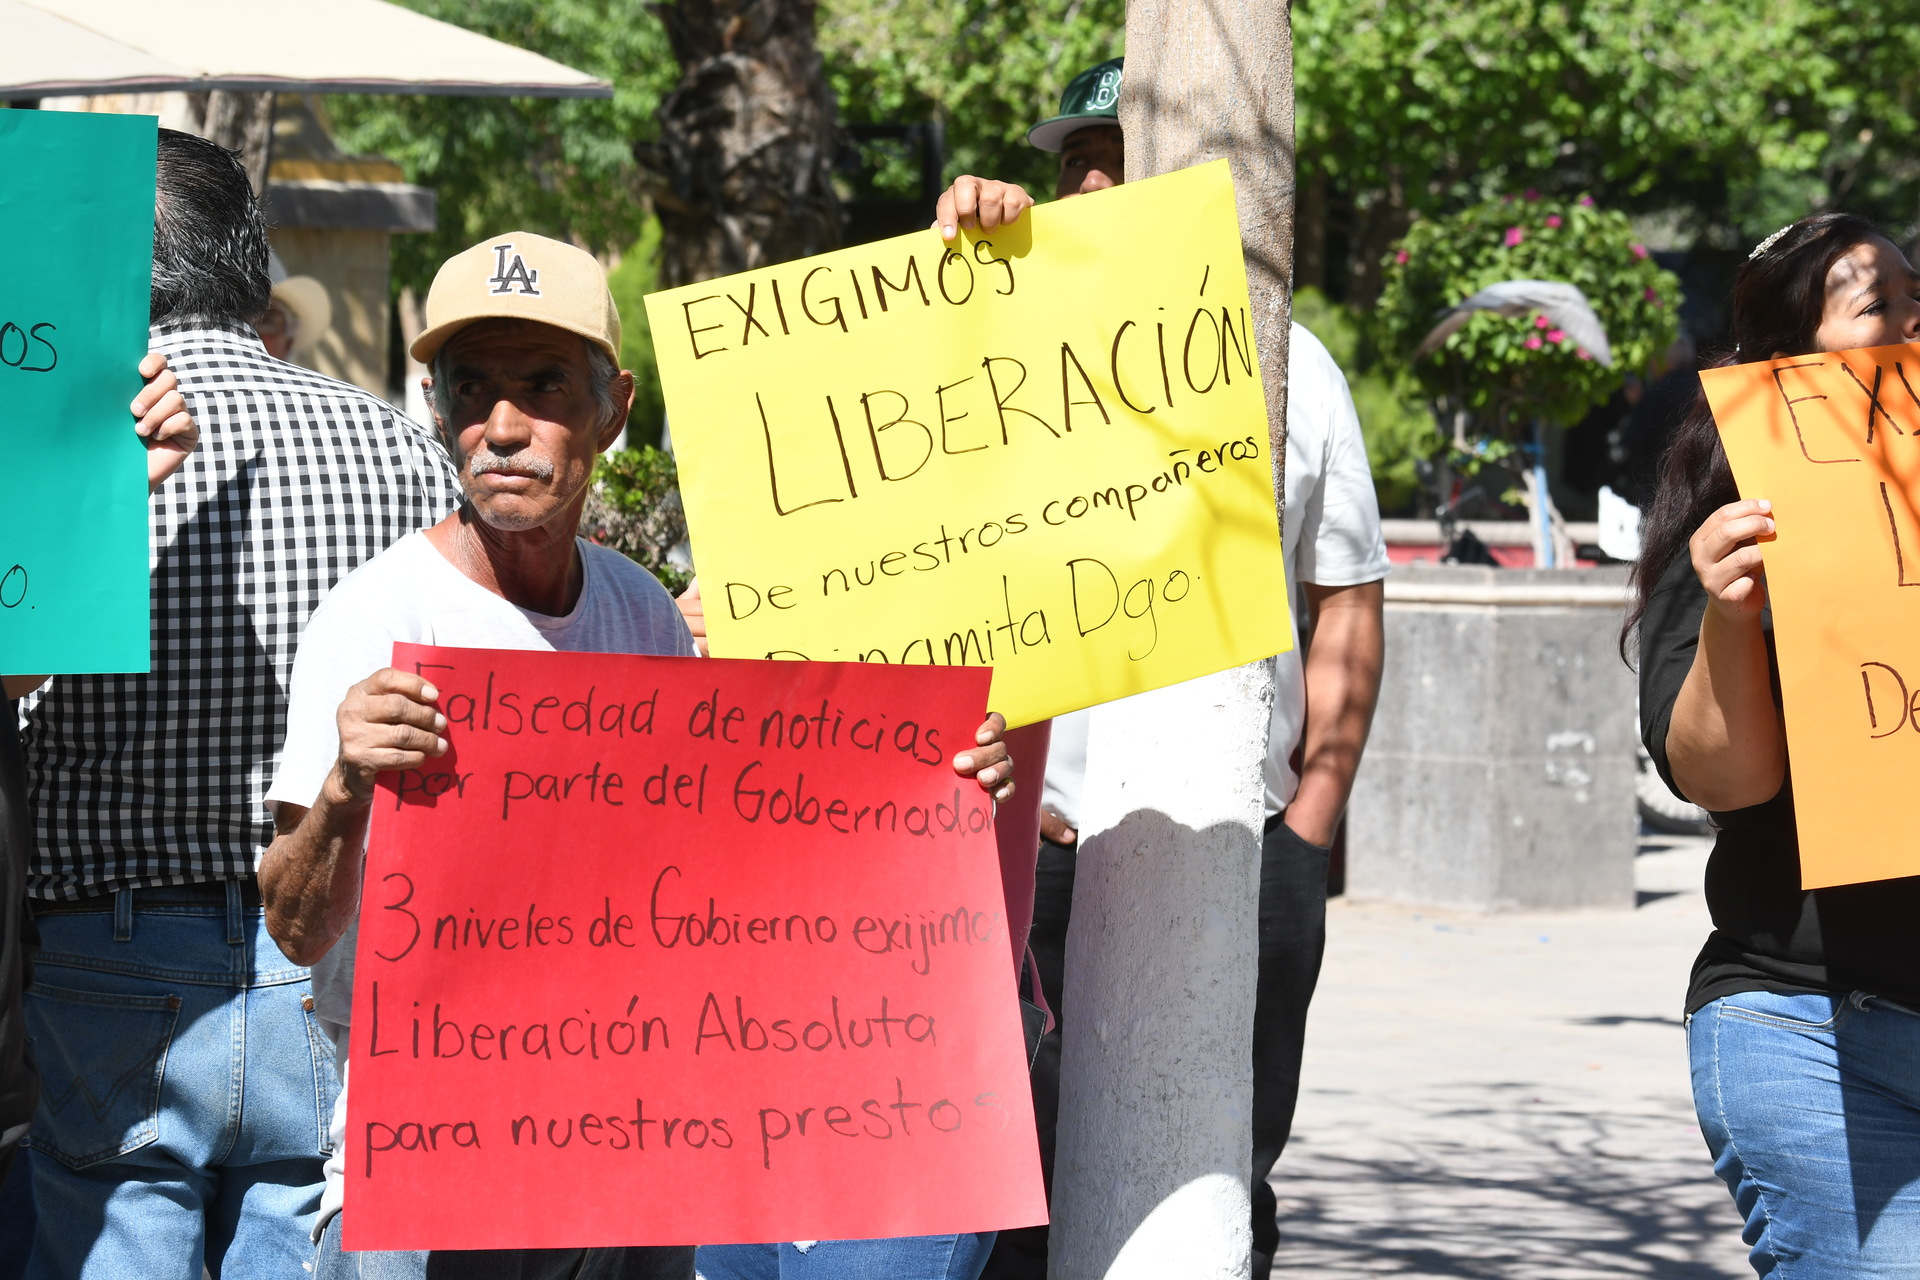 os
o.
LA
B
EXIGIMOS
LIBERACIÓN
De nuestros compañeros
Dinamita Dgo.
Falsedad de noticias
por parte del Gobernador
3 niveles de Gobierno exijimos
Liberación Absoluta
para nuestros prestos
EXI
L
De